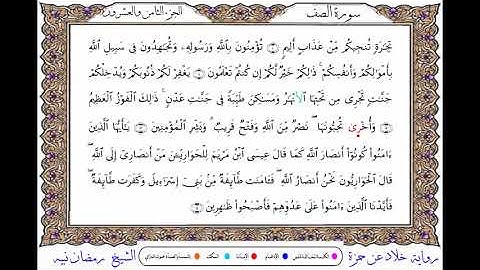 سورة الصف
الجزء الثامن والعشرون
تِجَٰرَةٍ تُنجِيكُم مِّنْ عَذَابٍ أَلِيمٍ ۝ تُؤْمِنُونَ بِٱللَّهِ وَرَسُولِهِۦ وَتُجَٰهِدُونَ فِى سَبِيلِ ٱللَّهِ
بِأَمْوَٰلِكُمْ وَأَنفُسِكُمْ ۚ ذَٰلِكُمْ خَيْرٌ لَّكُمْ إِن كُنتُمْ تَعْلَمُونَ ۝ يَغْفِرْ لَكُمْ ذُنُوبَكُمْ وَيُدْخِلْكُمْ
جَنَّٰتٍ تَجْرِى مِن تَحْتِهَا ٱلْأَنْهَٰرُ وَمَسَٰكِنَ طَيِّبَةً فِى جَنَّٰتِ عَدْنٍ ۚ ذَٰلِكَ ٱلْفَوْزُ ٱلْعَظِيمُ
۝ وَأُخْرَىٰ تُحِبُّونَهَا ۖ نَصْرٌ مِّنَ ٱللَّهِ وَفَتْحٌ قَرِيبٌ ۗ وَبَشِّرِ ٱلْمُؤْمِنِينَ ۝ يَٰٓأَيُّهَا ٱلَّذِينَ
ءَامَنُوا۟ كُونُوٓا۟ أَنصَارَ ٱللَّهِ كَمَا قَالَ عِيسَى ٱبْنُ مَرْيَمَ لِلْحَوَارِيِّـۧنَ مَنْ أَنصَارِىٓ إِلَى ٱللَّهِ ۖ
قَالَ ٱلْحَوَارِيُّونَ نَحْنُ أَنصَارُ ٱللَّهِ ۖ فَـَٔامَنَت طَّآئِفَةٌ مِّنۢ بَنِىٓ إِسْرَٰٓءِيلَ وَكَفَرَت طَّآئِفَةٌ ۖ
فَأَيَّدْنَا ٱلَّذِينَ ءَامَنُوا۟ عَلَىٰ عَدُوِّهِمْ فَأَصْبَحُوا۟ ظَٰهِرِينَ ۝
رواية خلاد عن حمزة
الشيخ رمضان نبيه